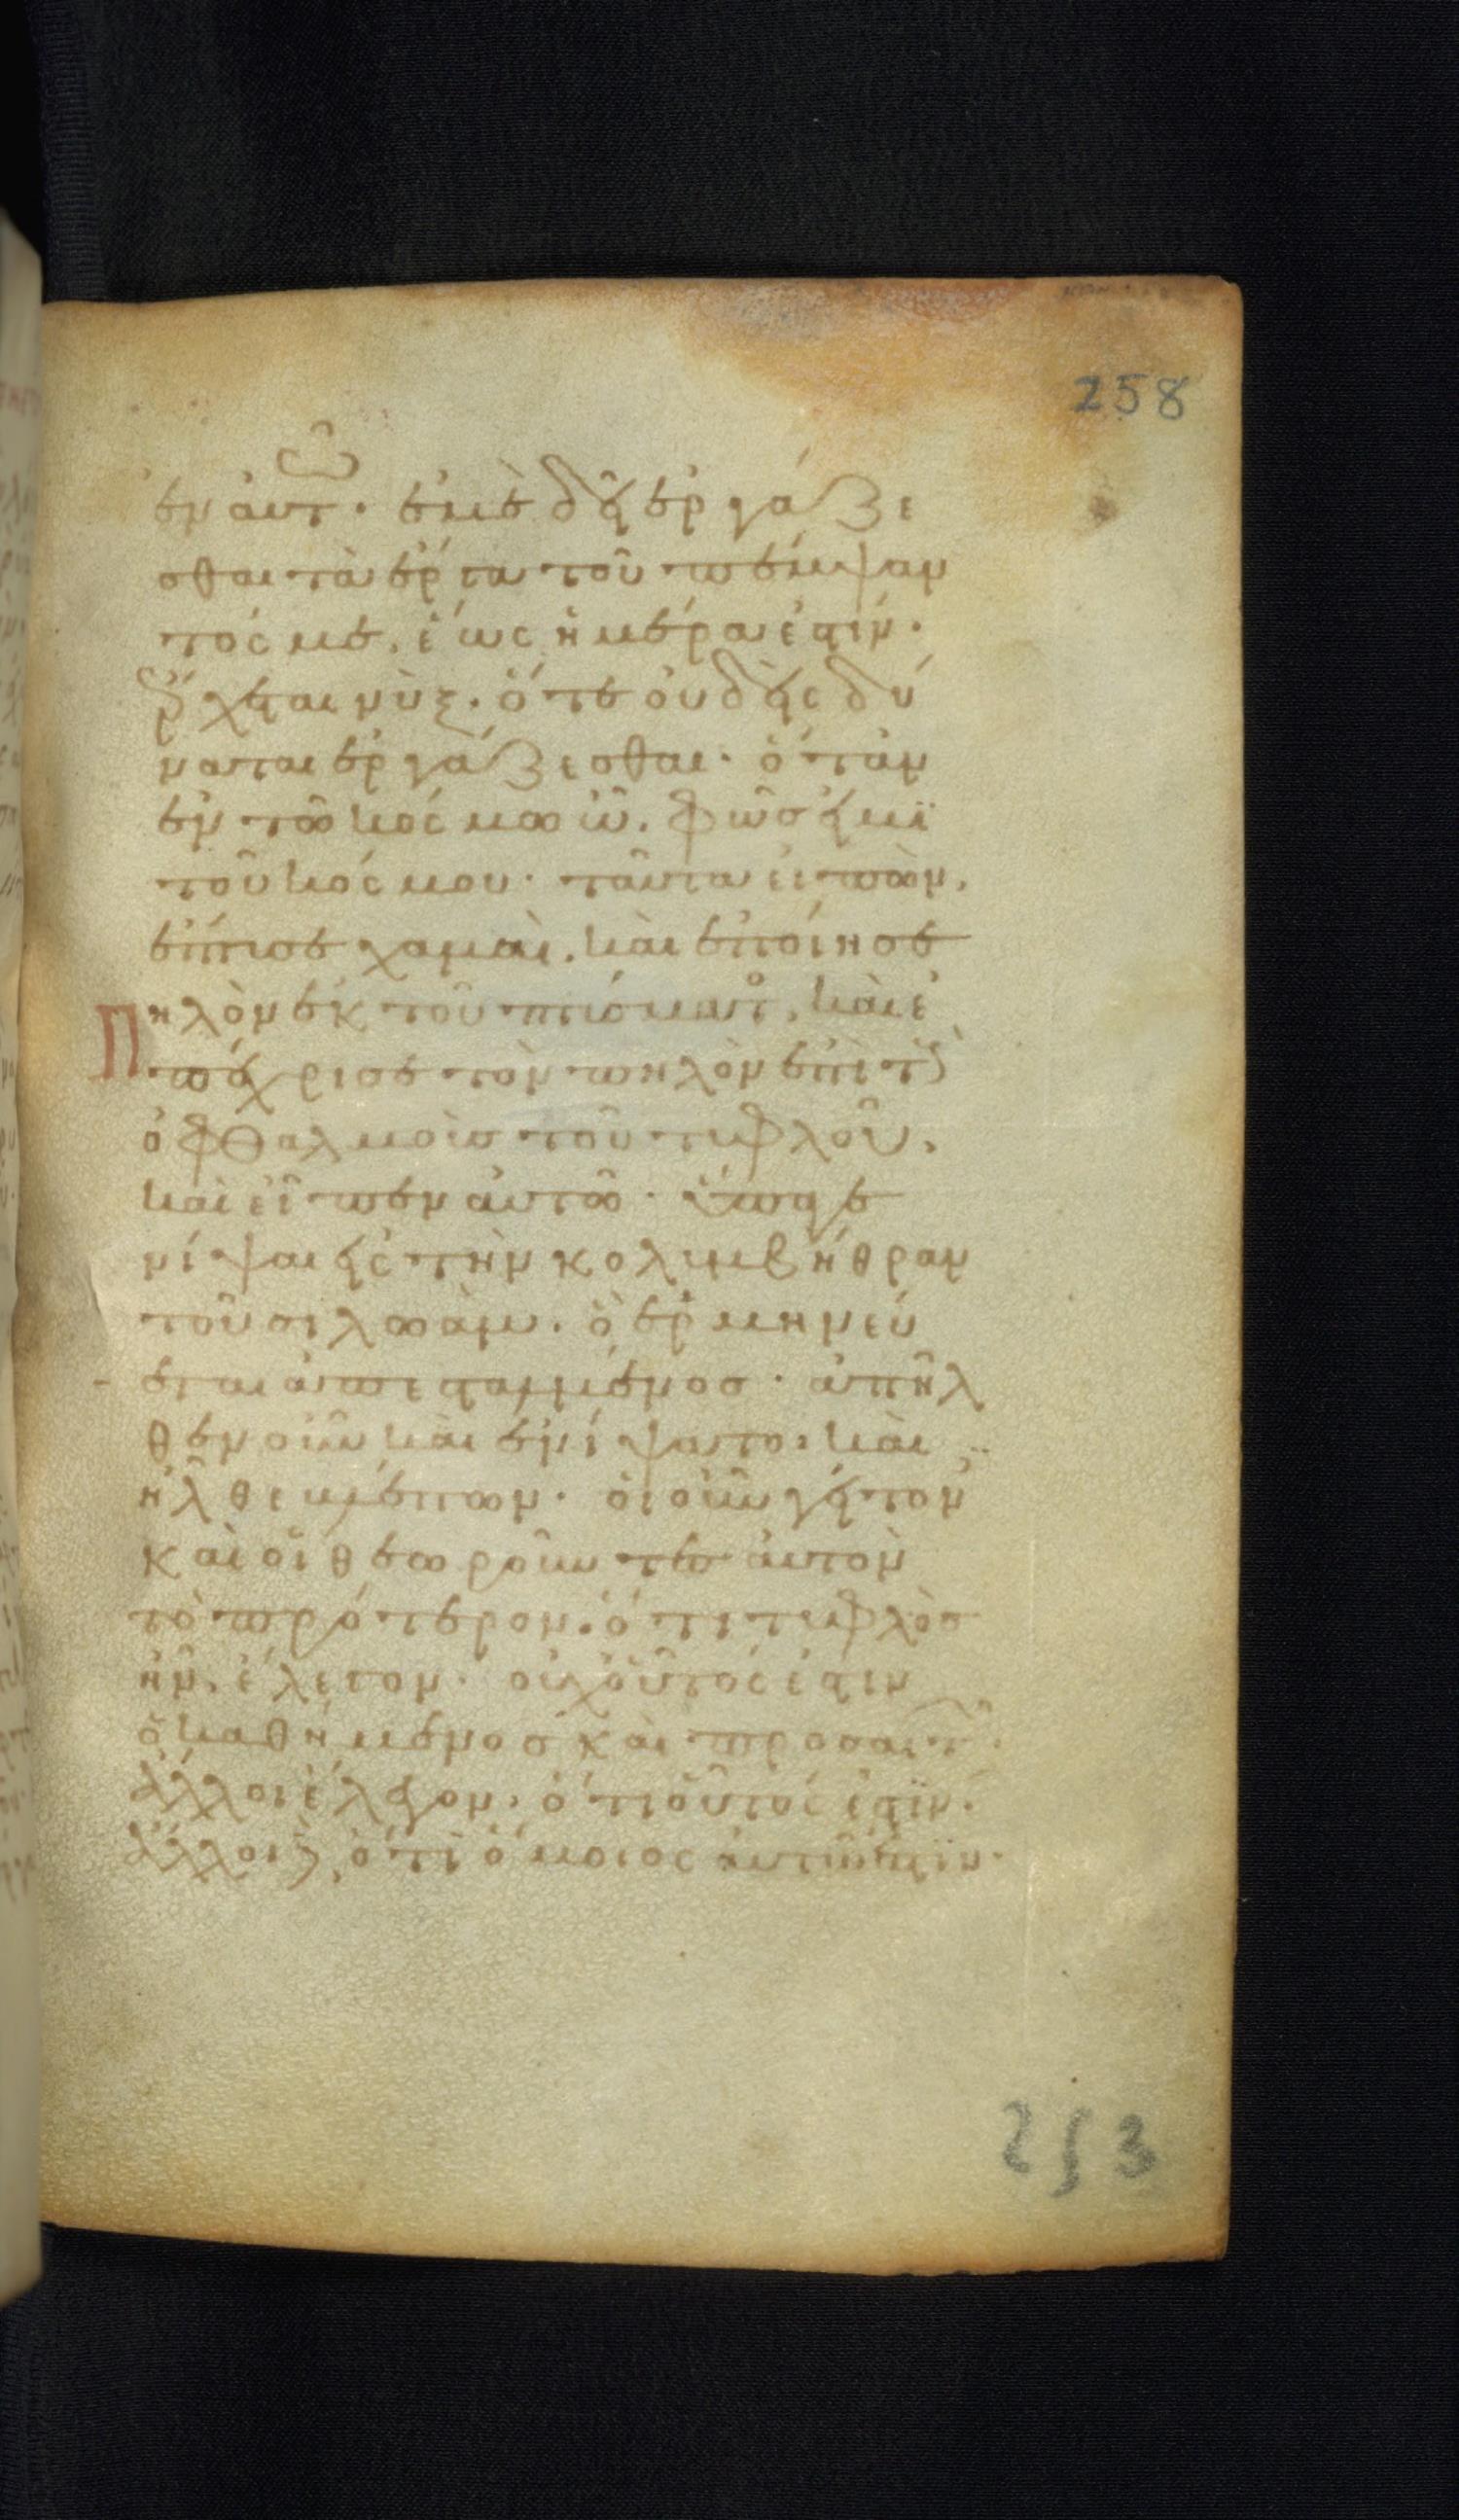 258
ἐν αὐτῶ. ἐμὲ δεῖ ἐργάζε
σθαι τὰ ἔργα τοῦ πέμψαν
τός με, ἕως ἡμέρα ἐστίν.
ἔρχεται νὺξ. ὅτε οὐδεὶς δύ
ναται ἐργάζεσθαι. ὅταν
ἐν τῶ κόσμω ὦ. φῶς εἰμϊ
τοῦ κόσμου. ταῦτα εἰπὼν,
ἔπτυσε χαμαὶ, καὶ ἐποίησε
πηλὸν ἐκ τοῦ πτύσματο, καὶ ἐ
πέχρισε τὸν πηλὸν ἐπὶ τοὺς
ὀφθαλμοὺσ τοῦ τυφλοῦ,
καὶ εἶπεν αὐτῶ. ὕπαγε
νίψαι εἰς τὴν κολυμβήθραν
τοῦ σιλωὰμ. ὃ ἑρμηνεύ
εται ἀπεσταλμένοσ. ἀπῆλ
θεν οὖν καὶ ἐνίψατο. καὶ
ἦλθε βλέπων. οἱ οὖν γείτον
καὶ οἱ θεωροῦντες αὐτὸν
τὸ πρότερον. ὅτι τυφλὸσ
ἦν, ἔλεγον. οὐχ οὗτός ἐστιν
ὁ καθήμενοσ καὶ προσαιτῶν.
ἄλλοι ἔλεγον. ὅτι οὗτός ἐστϊν.
ἄλλοι δὲ, ὅτι ὅμοιος αὐτῶ ἐστϊν.
253